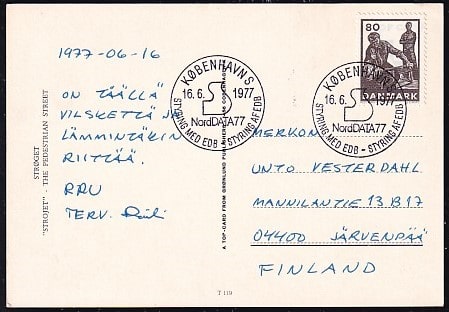 1977-06-16
ON TÄÄLLÄ
VILSKETTÄ JA
LÄMMINTÄKIN
RIITTÄÄ.
TERV.
STRØGET
"STROJET" - THE PEDESTRIAN STREET
A TOP-CARD FROM GRØNLUND
T 119
KØBENHAVN S
16.6. 1977
NordDATA77
STYRING MED EDB - STYRING AF EDB
KØBENHAVN S
16.6. 1977
NordDATA77
STYRING MED EDB - STYRING AF EDB
80
DANMARK
MERKON
UNTO VESTERDAHL
MANNILANTIE 13 B 17
04400 JÄRVENPÄÄ
FINLAND